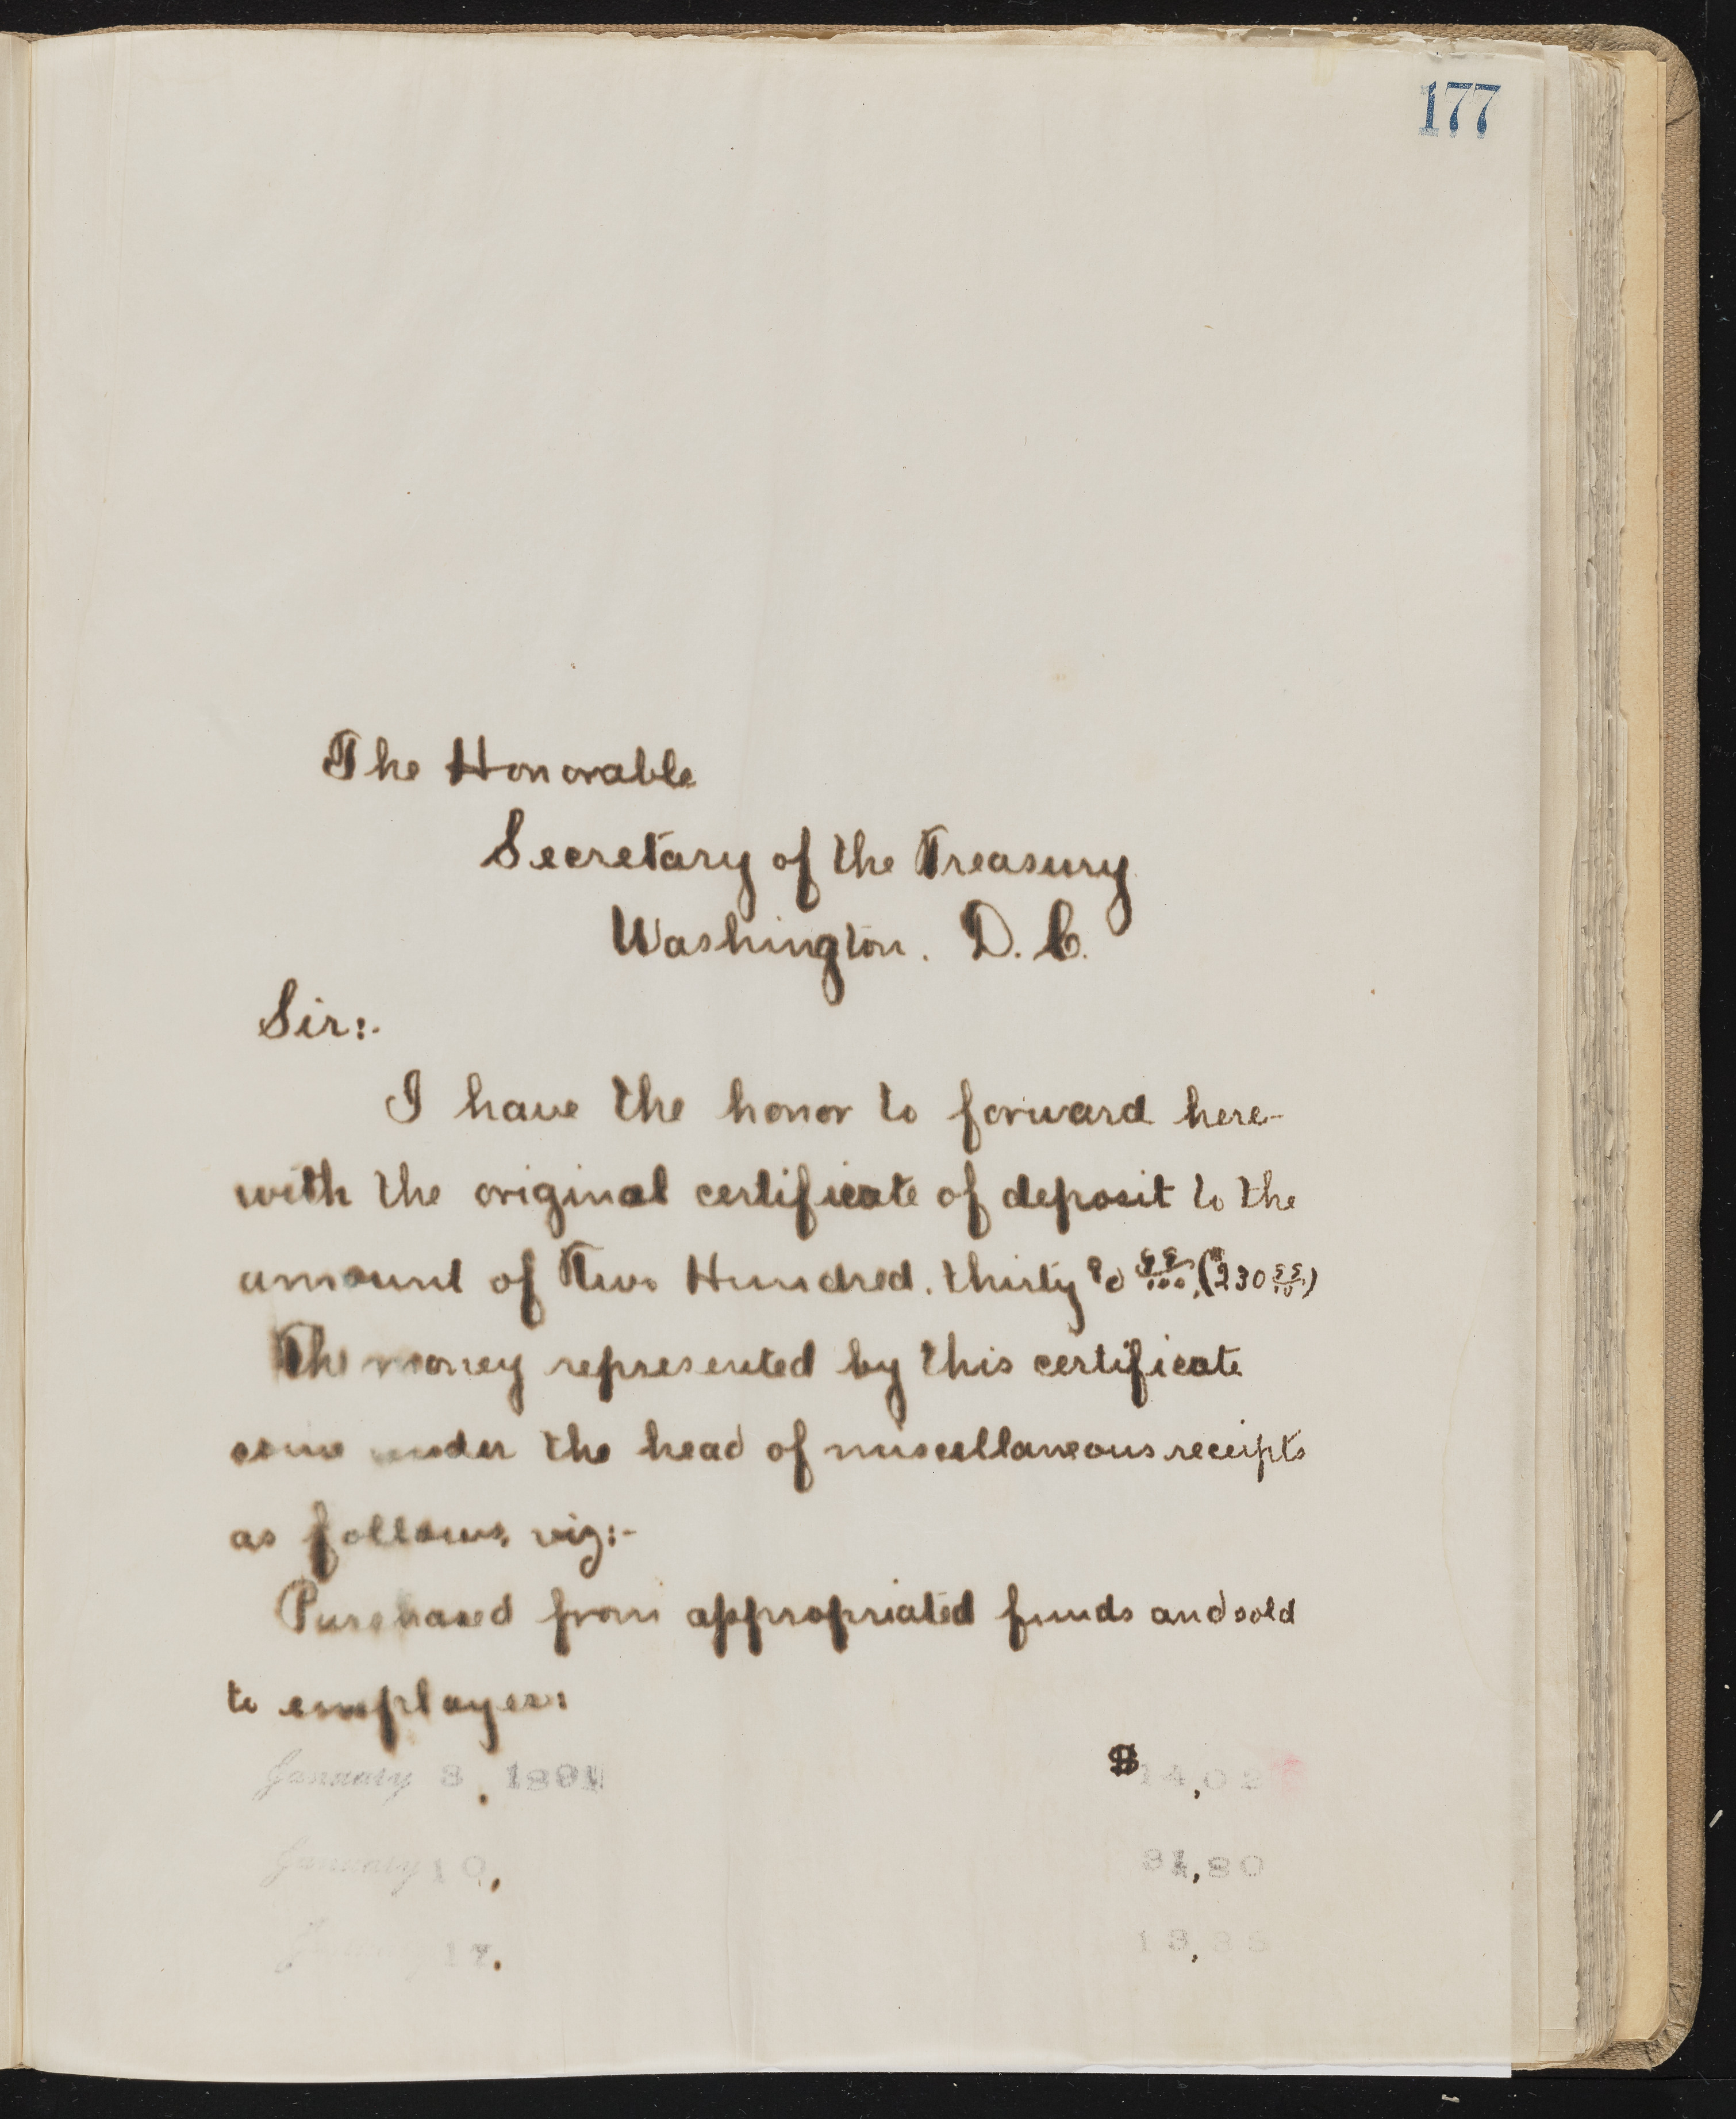 177
The Honorable
Secretary of the Treasury
Washington. D. C.
Sir:-
I have the honor to forward here-
with the original certificate of deposit to the
amount of Two Hundred. thirty & 55/100, ($230 55/100)
The money represented by this certificate
come under the head of miscellaneous receipts
as follows, viz:-
Purchased from appropriated funds and sold
to employes:
January 3, 1891 $14,02
January 10, ,80
January 17,